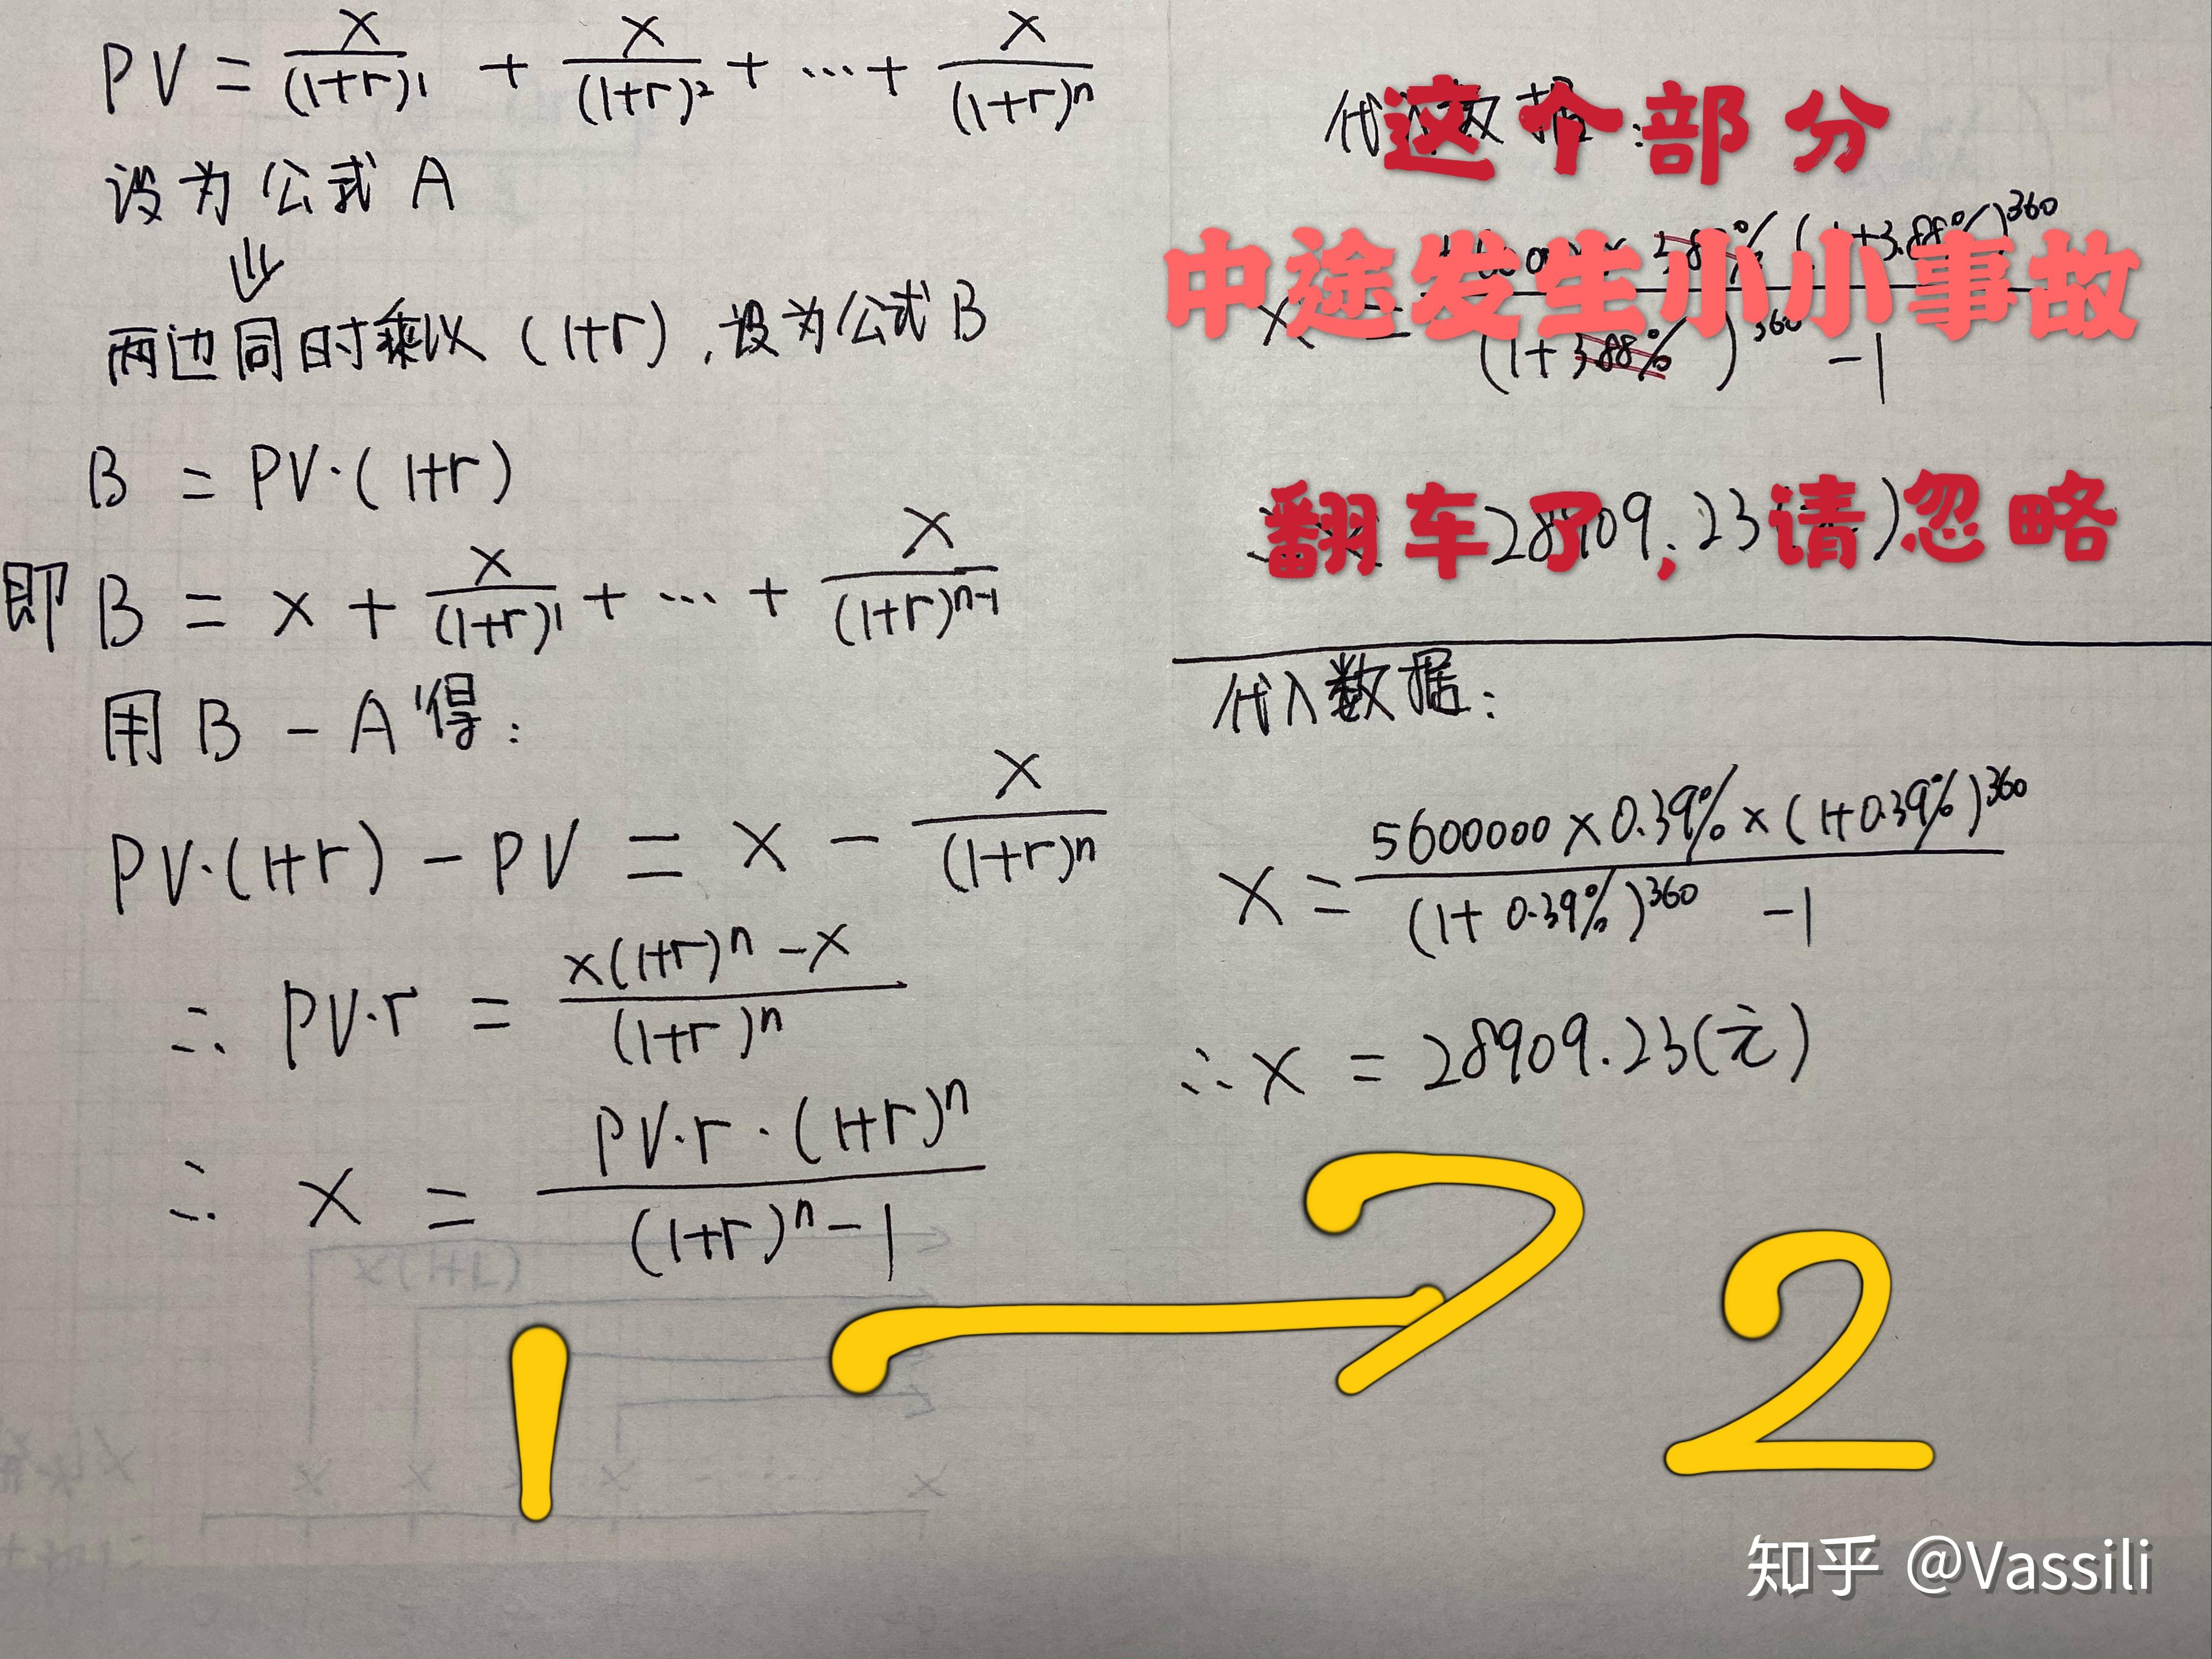 PV = x/(1+r)^1 + x/(1+r)^2 + … + x/(1+r)^n
设为公式A
⇓
两边同时乘以(1+r),设为公式B
B = PV·(1+r)
即 B = x + x/(1+r)^1 + … + x/(1+r)^(n-1)
用 B - A 得:
PV·(1+r) - PV = x - x/(1+r)^n
∴ PV·r = (x(1+r)^n - x)/(1+r)^n
∴ x = (PV·r·(1+r)^n)/((1+r)^n - 1)
1 → 2
这个部分
中途发生小小事故
翻车了,请忽略
3.88%)^360
x = (1+3.88%)^360 - 1
28909.23
代入数据:
x = (5600000 × 0.39% × (1+0.39%)^360)/((1+0.39%)^360 - 1)
∴ x = 28909.23(元)
知乎 @Vassili